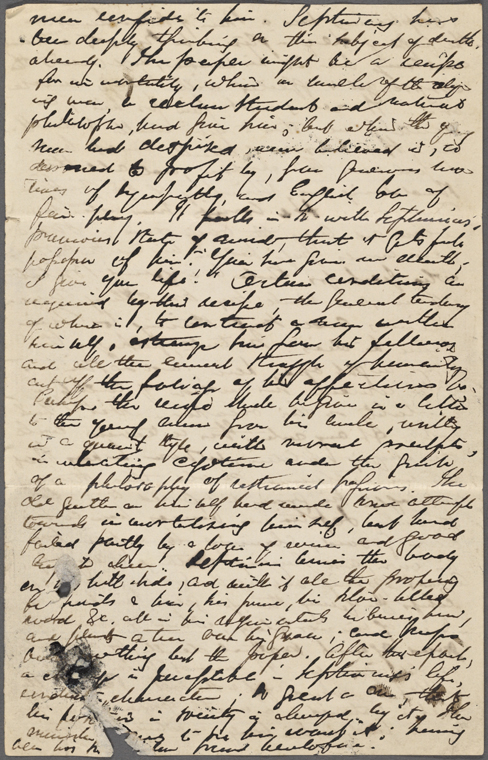 men confide to him. Septimius has
been deeply thinking on this subject of death
already. The paper might be a recipe
for immortality, which an uncle of the dy-
ing man, a recluse student and natural
philosopher, had given him; but which the young
man had despised, never believed in, or
deigned to profit by, from generous mo-
tives of sympathy, and English love of
fair play. It falls in so with Septimius's
previous state of mind, that it gets full
possession of him. "You have given me death,
I give you life." Certain conditions are
required by this recipe, the general tendency
of which is, to construct a man within
himself, estrange him from his fellows
and all the current traffic of humanity,
cut off the foliage of his affections &c.
Perhaps the recipe should be given in a letter
to the young man from his uncle, written
in a quaint style, with moral precepts,
inculcating egotism under the guise
of a philosophy of restrained passions. The
old gentleman himself had made some attempts
towards immortalising himself, but had
failed partly by a love of wine and good
Septimius buries the body
on the hill side, and with it all the property
he finds on him, his purse, his silver-hilted
sword, &c. all in his regimentals in burying him,
and plants a tree over his grave; and keeps
nothing but the paper. After his exploit,
a change is perceptible in Septimius's life,
conduct, character. A great
his position in society is changed by it. The
minister to him; having
been his